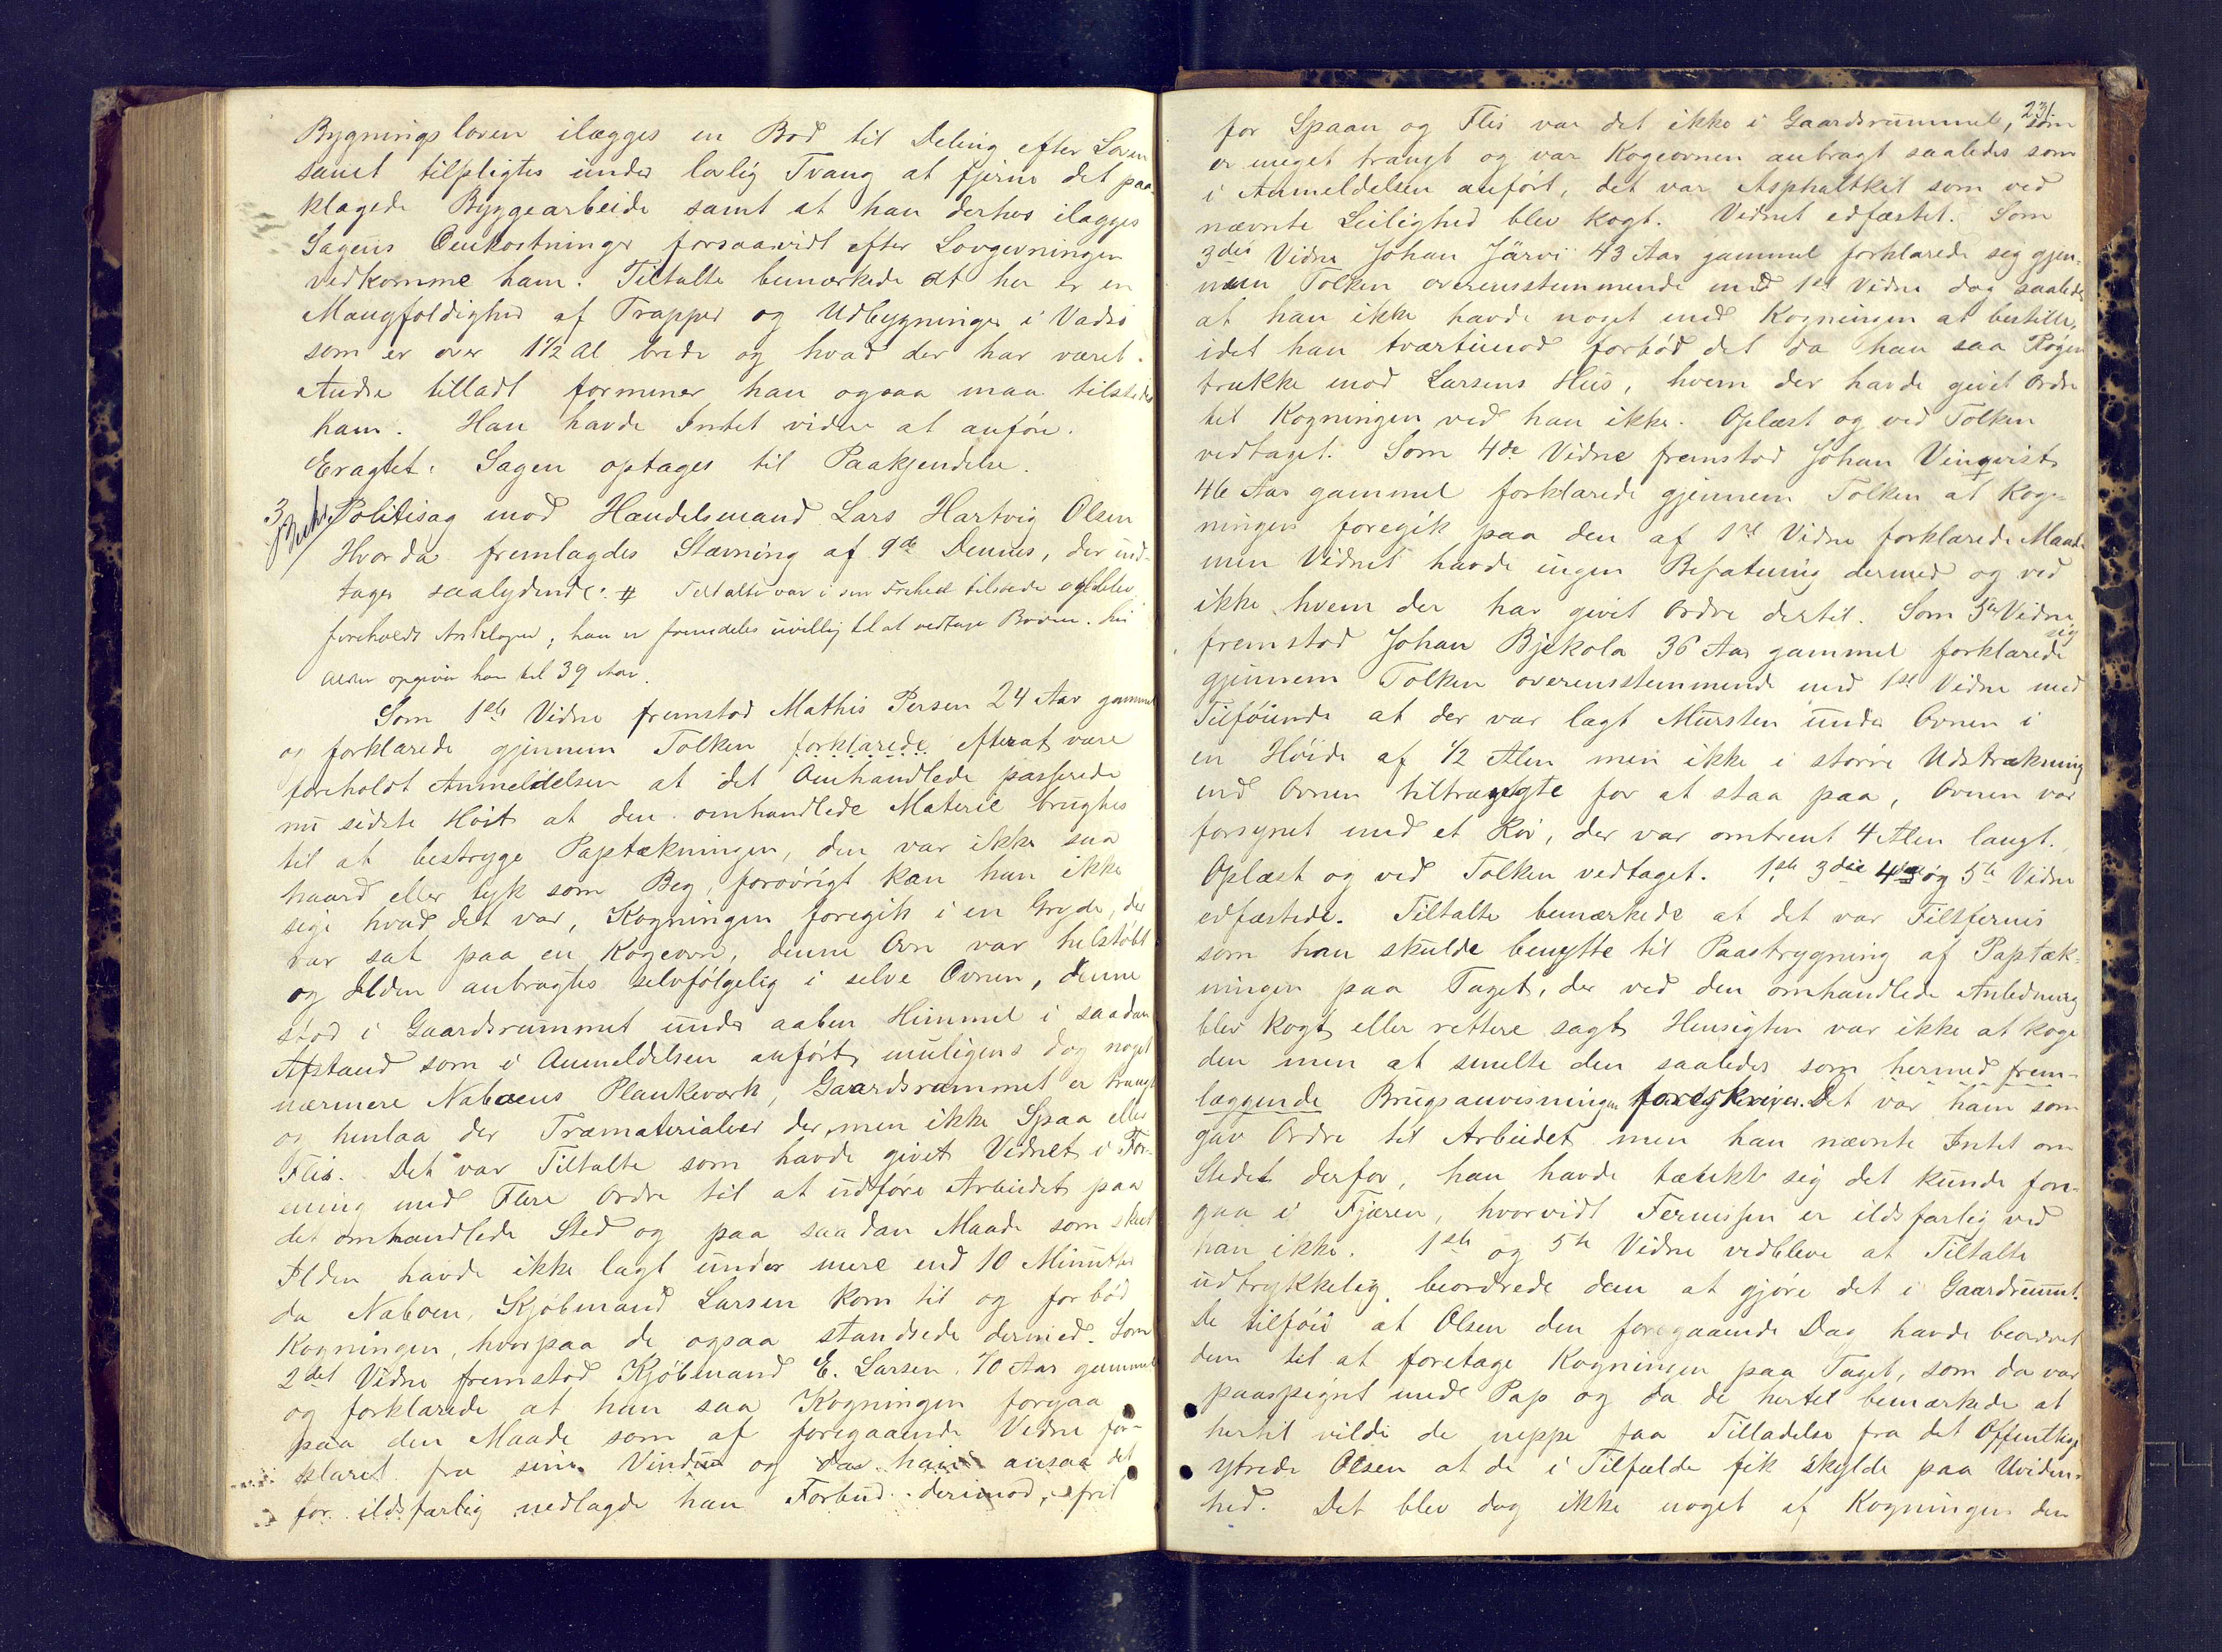 Bygningsloven ilægges en Bod til Deling efter Loven
samt tilpligtes under lovlig Tvang at fjerne det paa-
klagede Byggearbeide samt at han derhos ilægges
Sagens Omkostninger forsaavidt efter Lovgivningen
vedkomme ham. Tiltalte bemærkede at her er en
Mangfoldighed af Trapper og Udbygninger i Vadsö
som er over 1 1/2 Al brede og hvad der har været
Andre tilladt formener han ogsaa maa tilstedes
ham. Han havde Intet videre at anföre.
Eragtet: Sagen optages til Paakjendelse.
3, Politisag mod Handelsmand Lars Hartvig Olsen
Hvor da fremlagdes Stævning af 9de Dennes, der ind-
tages saalydende: # Tiltalte var i sin Frihed tilstede og blev
foreholdt Anklagen; han er fremdeles uvillig til at vedtage Boden. Sin
Alder opgiver han til 39 Aar.
Som 1ste Vidne fremstod Mathis Persen 24 Aar gammel
og forklarede gjennem Tolken forklarede efterat være
foreholdt Anmeldelsen at det Omhandlede passerede
nu sidste Höst at den omhandlede Materie brugtes
til at bestryge Paptækningen, den var ikke saa
haard eller tyk som Beg, forövrigt kan han ikke
sige hvad det var, Kogningen foregik i en Gryde, der
var sat paa en Kogeovn, denne Ovn var helstöbt
og Ilden anbragtes selvfölgelig i selve Ovnen, denne
stod i Gaardsrummet under aaben Himmel i saadan
Afstand som i Anmeldelsen anfört, muligens dog noget
nærmere Naboens Plankeværk, Gaardsrummet er trangt
og henlaa der Træmaterialier der, men ikke Spaan eller
Flis. Det var Tiltalte som havde givet Vidnet i For-
ening med Flere Ordre til at udföre Arbeidet paa
det omhandlede Sted og paa saadan Maade som skeet
Ilden havde ikke lagt under mere end 10 Minutter
da Naboen, Kjöbmand Larsen kom til og forböd
Kogningen, hvorpaa de ogsaa standsede dermed. Som
2det Vidne fremstod Kjöbmand E. Larsen, 70 Aar gammel
og forklarede at han saa Kogningen foregaa
paa den Maade som af foregaaende Vidne for-
klaret fra sine Vinduer og da han ansaa det
for ildsfarlig nedlagde han Forbud derimod,
231.
for Spaan og Flis var det ikke i Gaardsrummet, som
er meget trangt og var Kogeovnen anbragt saaledes som
i Anmeldelsen anfört, det var Asphaltkit som ved
nævnte Leilighed blev kogt. Vidnet edfæstet. Som
3die Vidne Johan Järvi 43 Aar gammel forklarede sig gjen-
nem Tolken overensstemmende med 1ste Vidne dog saaledes
at han ikke havde noget med Kogningen at bestille,
idet han tværtimod forböd det da han saa Rögen
trække mod Larsens Hus, hvem der havde givet Ordre
til Kogningen ved han ikke. Oplæst og ved Tolken
vedtaget. Som 4de Vidne fremstod Johan Vinqvist
46 Aar gammel forklarede gjennem Tolken at Kog-
ningen foregik paa den af 1ste Vidne forklarede Maade
men Vidnet havde ingen Befatning dermed og ved
ikke hvem der har givet Ordre dertil. Som 5te Vidne
fremstod Johan Bjekola 36 Aar gammel forklarede sig
gjennem Tolken overensstemmende med 1ste Vidne med
Tilföiende at der var lagt Mursten under Ovnen i
en Höide af 1/2 Alen men ikke i större Udstrækning
end Ovnen tiltrængte for at staa paa, Ovnen var
forsynet med et Rör, der var omtrent 4 Alen langt.
Oplæst og ved Tolken vedtaget. 1ste 3die 4de og 5te Vidne
edfæstede. Tiltalte bemærkede at det var Filtfernis
som han skulde benytte til Paastrygning af Paptæk-
ningen paa Taget, der ved den omhandlede Anledning
blev kogt eller rettere sagt Hensigten var ikke at koge
den men at smelte den saaledes som hermed frem-
læggende Brugsanvisningen foreskriver. Det var ham som
gav Ordre til Arbeidet men han nævnte Intet om
Stedet derfor, han havde tænkt sig det kunde fore-
gaa i Fjæren, hvorvidt Fernissen er ildsfarlig ved
han ikke. 1ste og 5te Vidne vedbleve at Tiltalte
udtrykkelig beordrede dem at gjöre det i Gaardrummet.
De tilföie at Olsen den foregaaende Dag havde beordret
dem til at foretage Kogningen paa Taget, som da var
paaspigret med Pap og da de hertil bemærkede at
hertil vilde de neppe faa Tilladelse fra det Offentlige
ytrede Olsen at de i Tilfælde fik skylde paa Uviden-
hed. Det blev dog ikke noget af Kogningen den